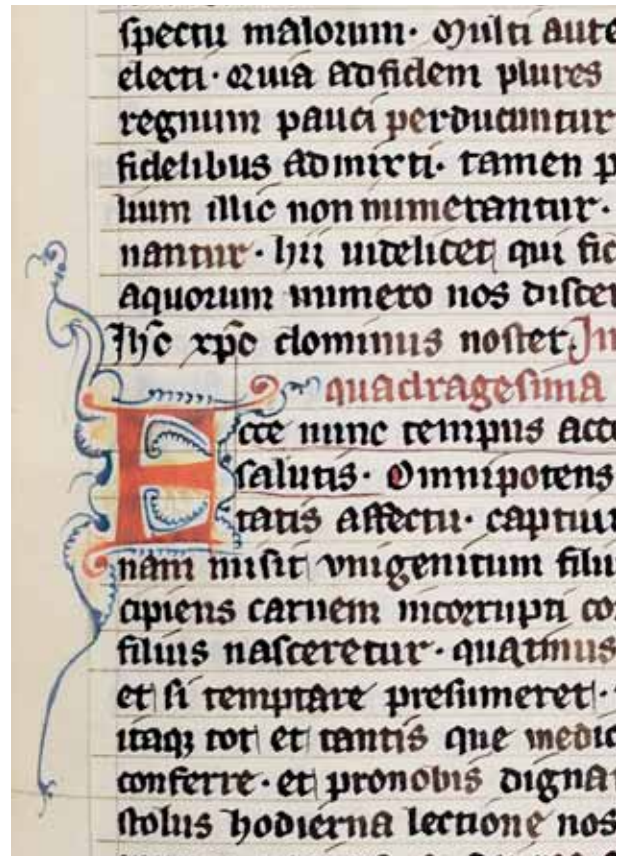 spectu malorum· Multi aute
electi· Quia ad fidem plures
regnum pauci perducuntur
fidelibus admixti· tamen p
lium illic non numerantur·
nantur· hii uidelicet qui fid
aquorum numero nos disce
Ihc xpc dominus noster. In
quadragesima
Ecce nunc tempus acce
salutis· Omnipotens
tatis affectu· captiui
nam misit vnigenitum filiu
cipiens carnem incorrupti co
filius nasceretur· quatinus
et si temptare presumeret·
itaqꝫ tot et tantis que medic
conferre· et pro nobis digna
stolus hodierna lectione nos